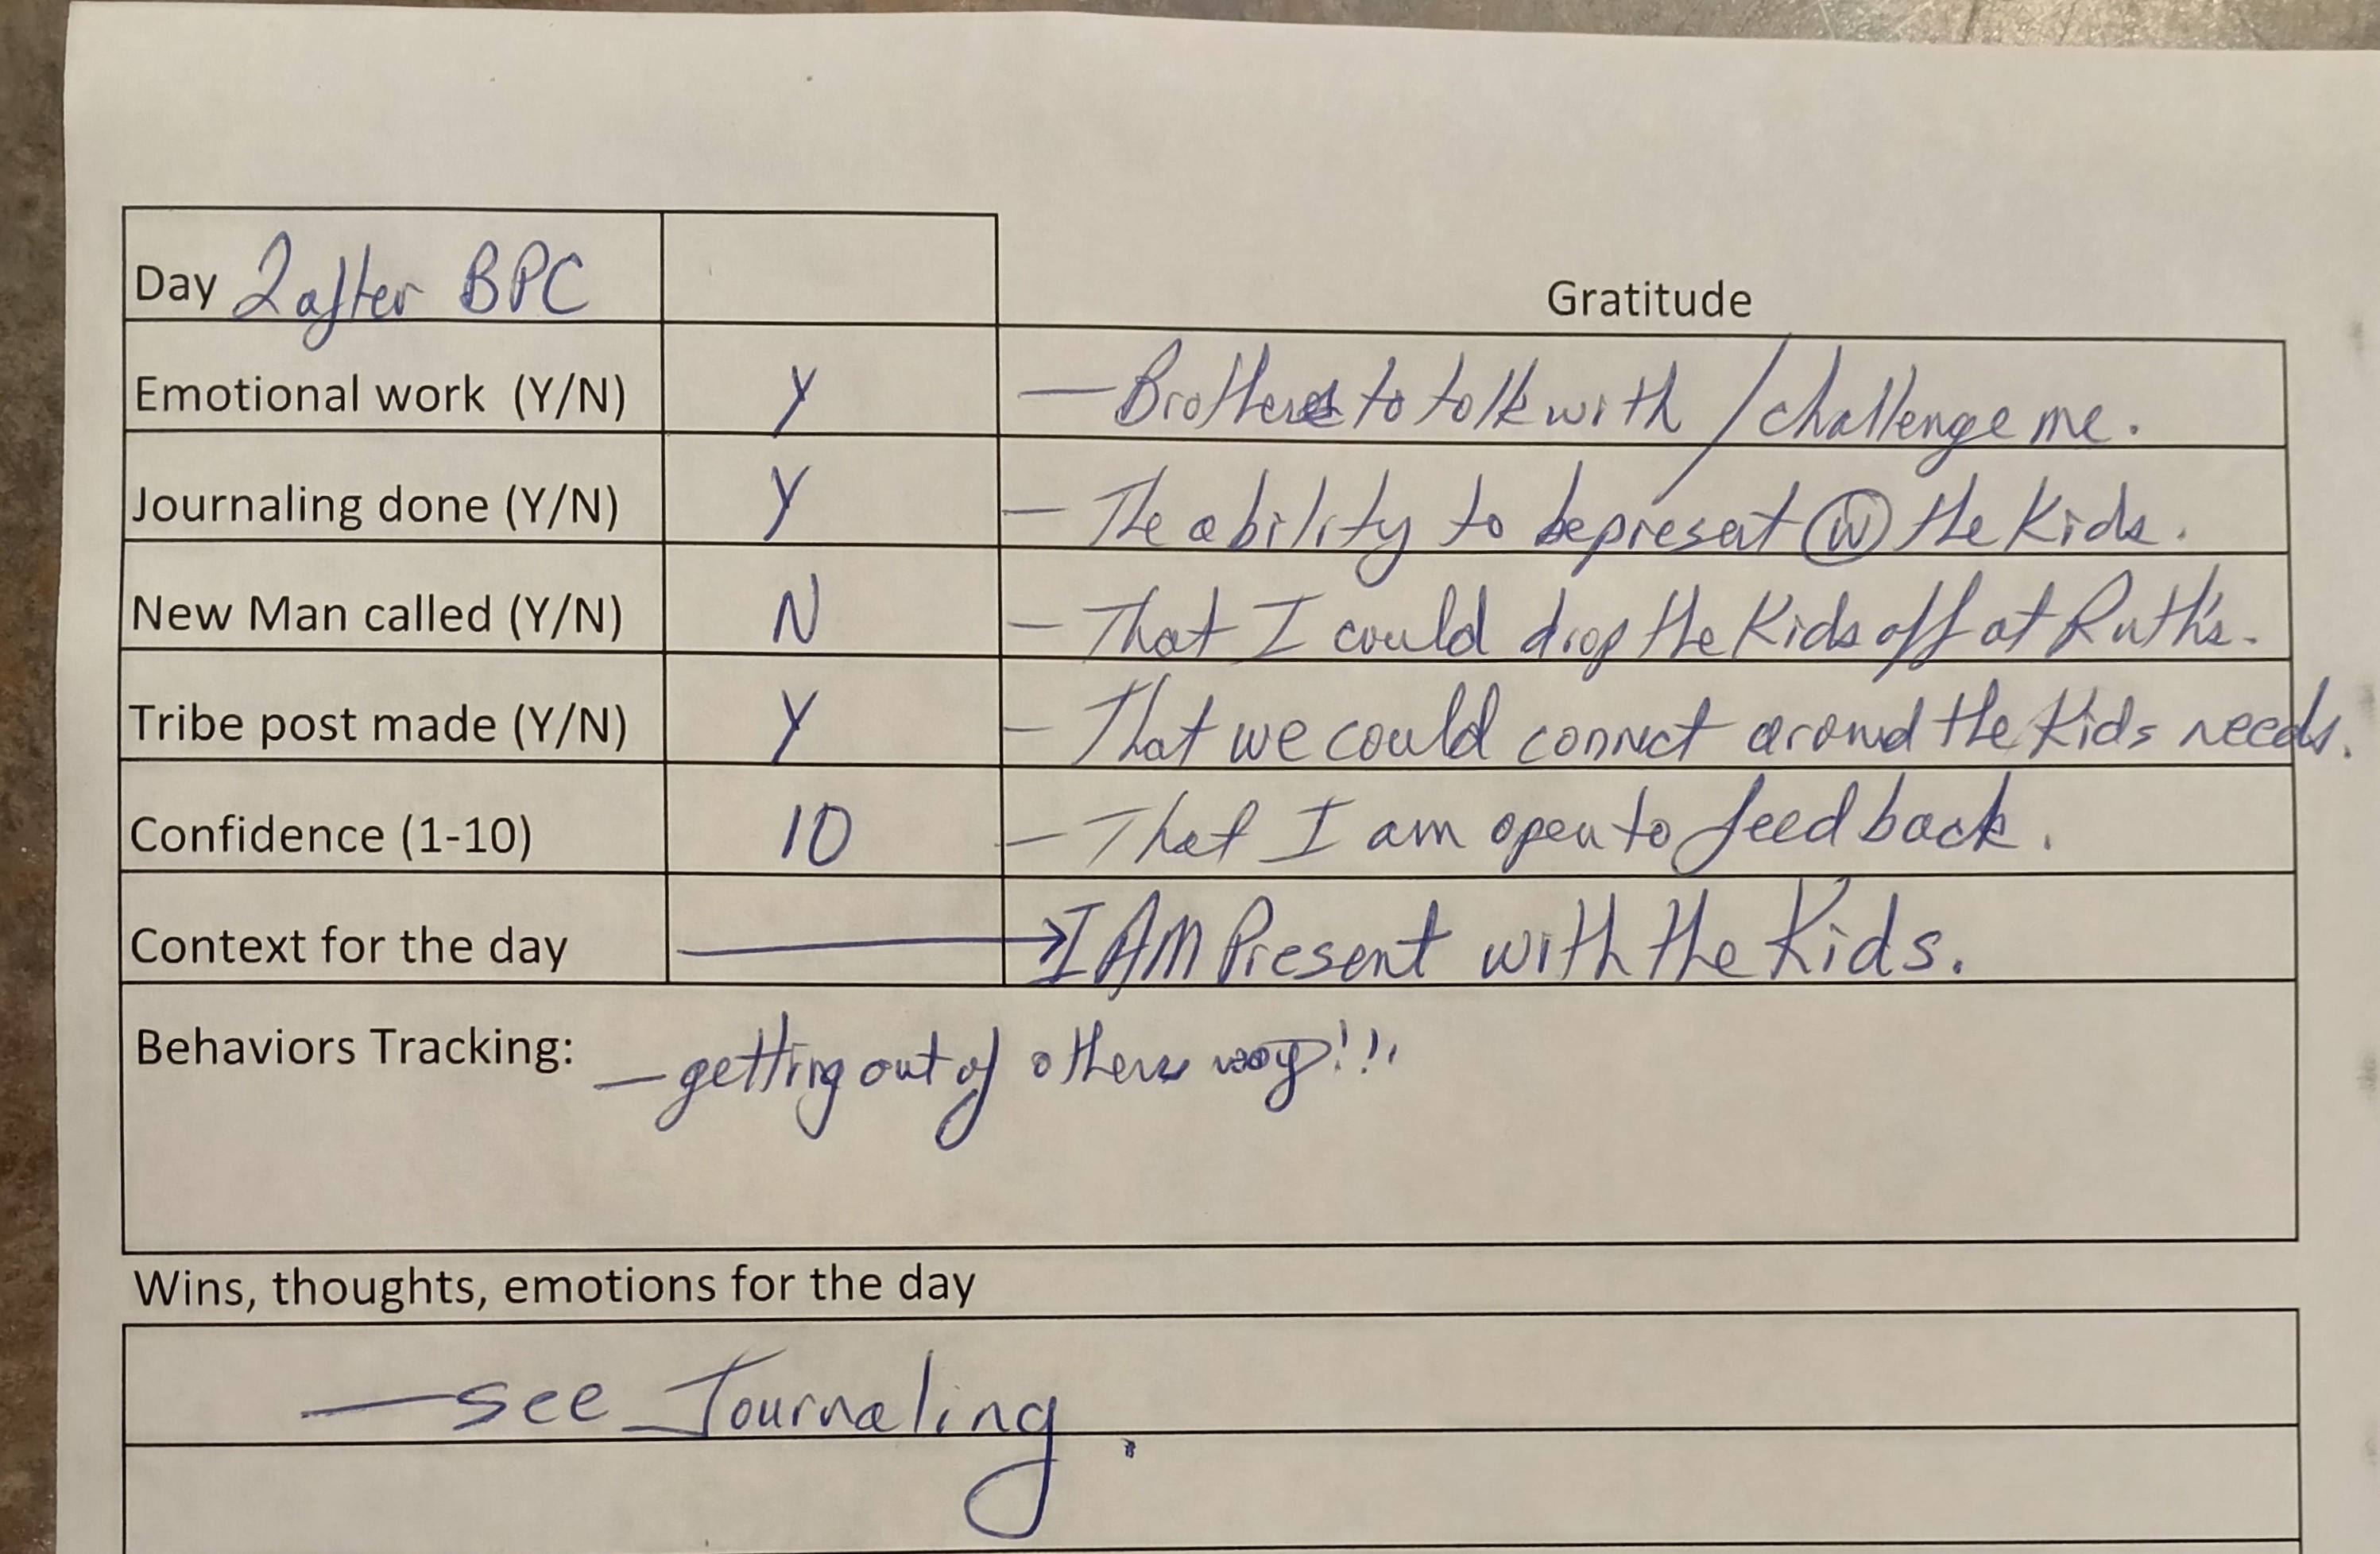 Day 2 after BPC
Gratitude
Emotional work (Y/N) Y — Brothers to talk with / challenge me.
Journaling done (Y/N) Y — The ability to be present ⓦ the Kids.
New Man called (Y/N) N — That I could drop the Kids off at Ruth's.
Tribe post made (Y/N) Y — That we could connect around the Kids needs.
Confidence (1-10) 10 — That I am open to feedback.
Context for the day → I AM Present with the Kids.
Behaviors Tracking: — getting out of others way!!!
Wins, thoughts, emotions for the day
— see Journaling.